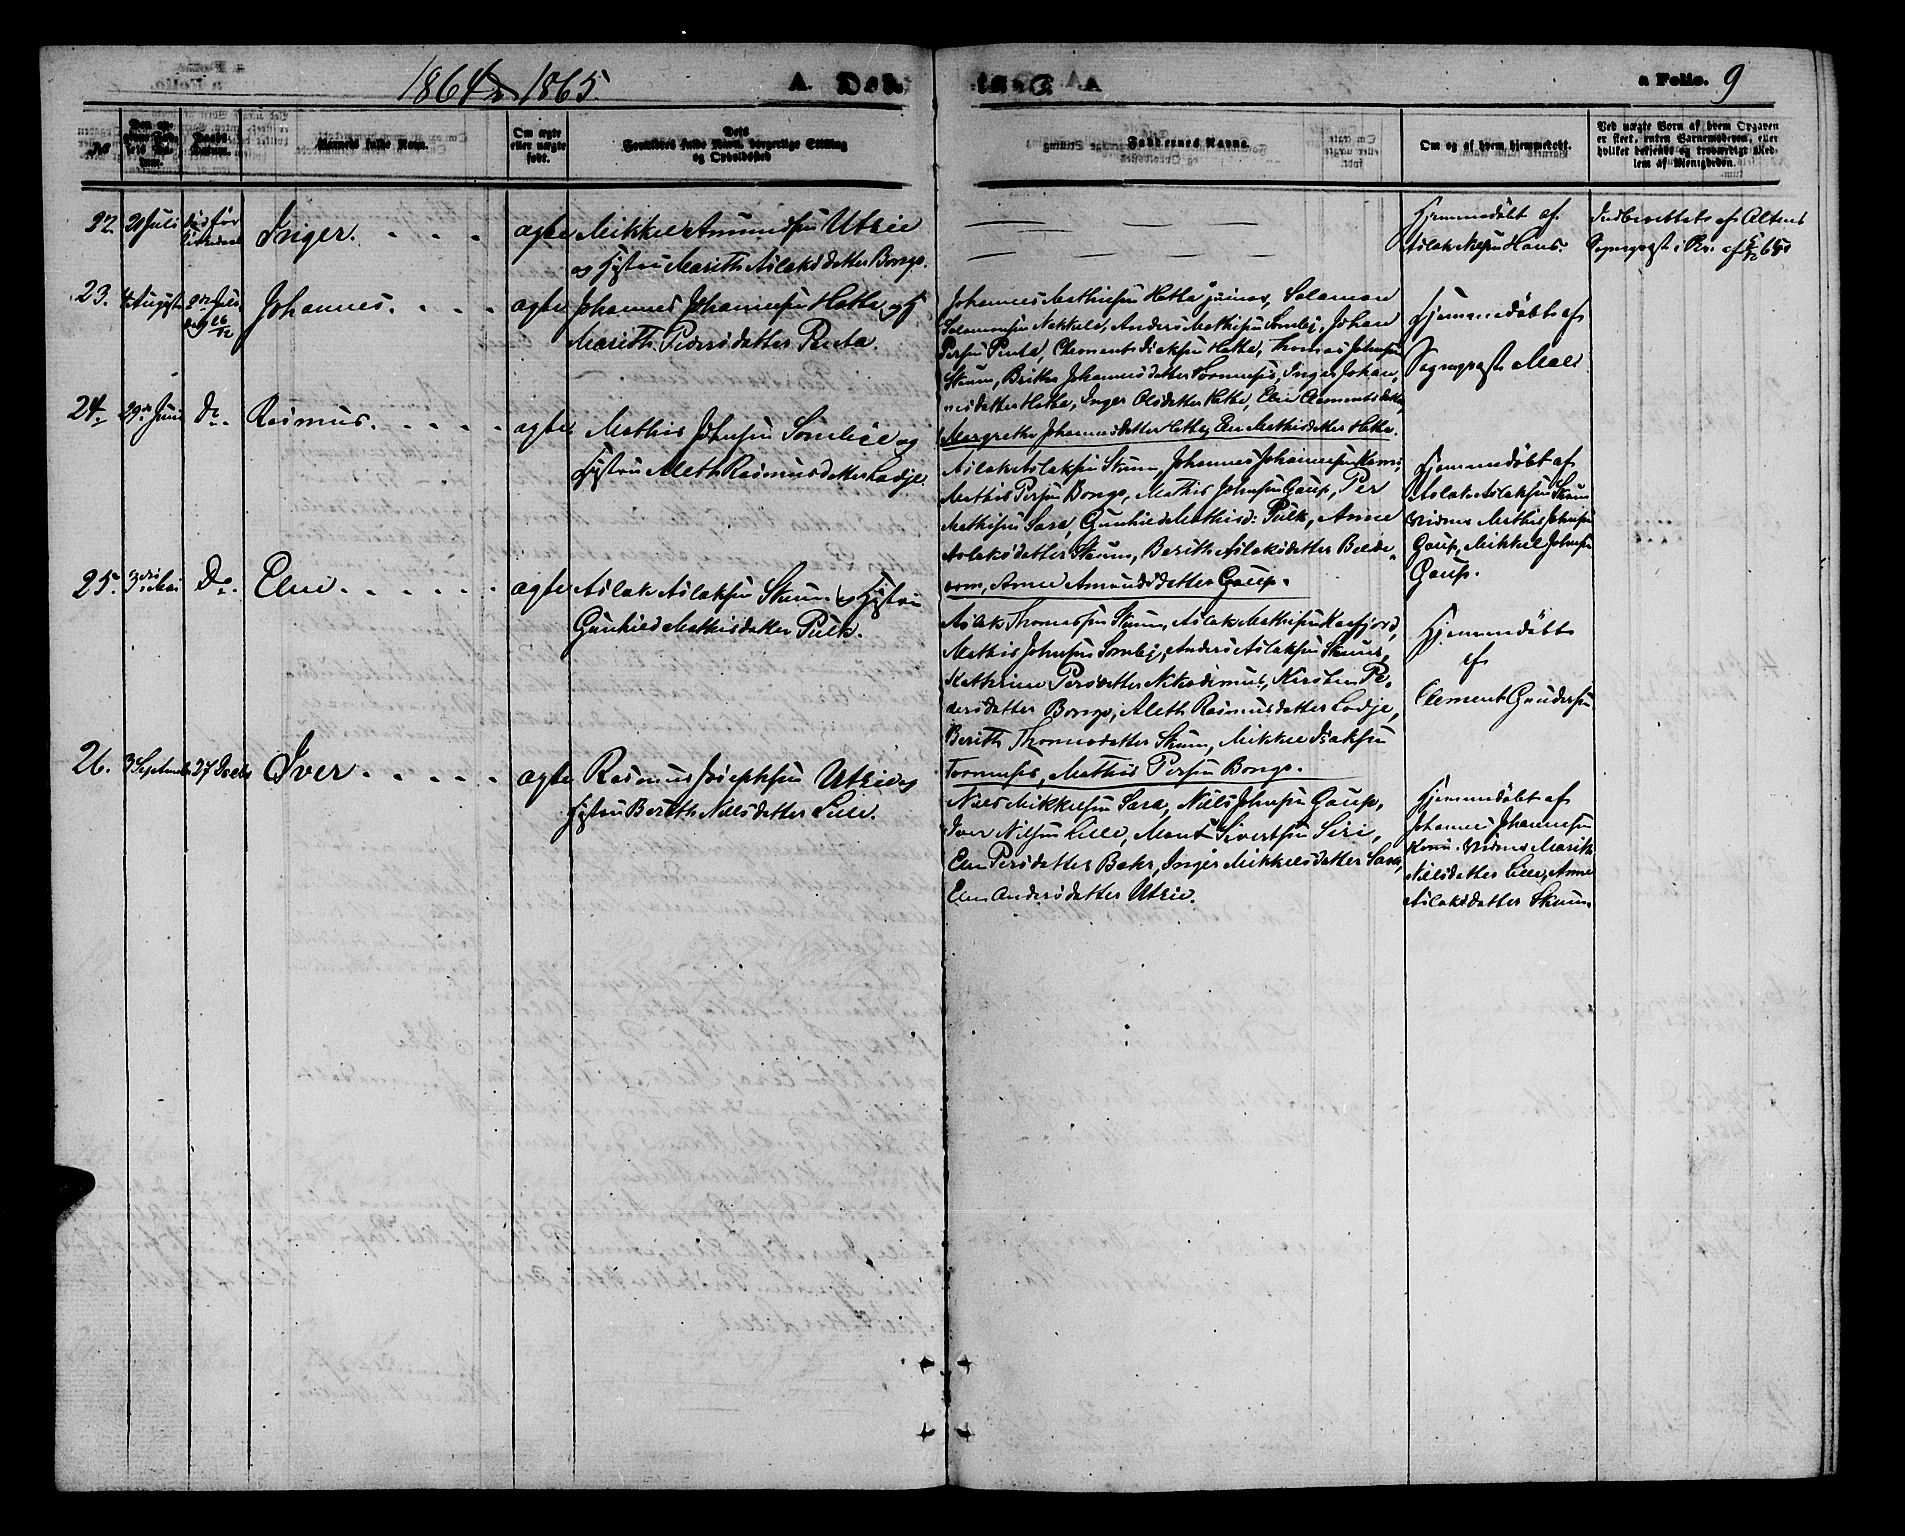 1864 1865.
A. Døbte
a Folio. 9
№
Barnets fulde Navn.
Om ægte eller uægte født.
Dets Forældres fulde Navn, borgerlige Stilling og Opholdssted
Faddernes Navne.
Om og af hvem hjemmedøbt.
Ved uægte Born af hvem Opgaven er skeet, enten Barnemoderen, eller hvilket bekjendt og troværdigt Medlem af Menigheden.
22. 21 Juli
Inger. . . . .
ægte Mikkel Amundsen Utsie
og Hustru Marith Aslaksdatter Bongo.
Hjemmedøbt af
Aslak Nilsen Hans.
Indberettet af Altens
Sognepræst
23. August 2den Jule-
dag 26/12
Johannes. . . .
ægte Johannes Johannesen Hætta og H
Marith Pedersdatter Penta.
Johannes Mathisen Hætta junior, Salamon
Salamonsen Nekkelo, Anders Mathisen Somby, Johan
Persen Penta, Clement Isaksen Hætta, Thomas Johnsen
Skum, Brita Johannesdatter Tornensis, Inger Johan,
nesdatter Hætta, Inger Olsdatter Hætta, Elen Clementsdatter,
Margrethe Johannesdatter Hætta, Elen Mathisdatter Hætta.
Hjemmedøbt af
Sognepræst Moe
24. 29de Juni Do. Rasmus. . . . .
ægte Mathis Johnsen Sombie og
Hustru Aleth Rasmusdatter Lodje
Aslak Aslaksen Skum, Johannes Johannesen
Mathis Persen Bongo, Mathis Johnsen Gaup, Per
Mathisen Sara, Gunhild Mathisd: Pulk, Anne
Aslaksdatter Skum, Berith Aslaksdatter
Anne Amundsdatter Gaup.
Hjemmedøbt af
Aslak Aslaksen Skum
Vidner Mathis Johnsen
Gaup, Mikkel Johnsen
Gaup.
25. 3die Mai Do. Elen . . . . .
ægte Aslak Aslaksen Skum og Hustru
Gunhild Mathisdatter Pulk.
Aslak Thomassen Skum, Aslak Mathisen Kaafjord,
Mathis Johnsen Somby, Anders Aslaksen Skum,
Kathrine Persdatter Nikodemus, Kirsten Pe-
dersdatter Bongo, Aleth Rasmusdatter Lodje,
Berith Thomasdatter Skum, Mikkel Isaksen
Tornensis, Mathis Persen Bongo.
Hjemmedøbt
af
Clement Gundersen
26. 3 Septembr 27 Decbr Iver . . . . .
ægte Rasmus Josephsen Utsi og
Hustru Berith Nielsdatter Lille.
Niels Mikkelsen Sara, Niels Johnsen Gaup,
Iver Nilsen Lille, Mont Sivertsen Siri,
Elen Persdatter Bahr, Inger Mikkelsdatter Sara,
Elen Andersdatter Utsie.
Hjemmedøbt af
Johannes Johannesen
Vidner Marith
Nielsdatter Lille, Anne
Aslaksdatter Skum.